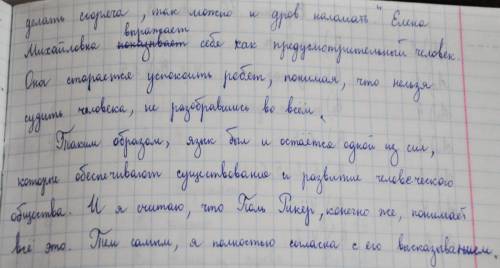 делать сгоряча, так можно и дров наломать" Елена
выражает
Михайловна показывает себе как предусмотрительный человек.
Она старается успокоить ребят, понимая, что нельзя
судить человека, не разобравшись во всём.
Таким образом, язык был и остаётся одной из сил,
которые обеспечивают существование и развитие человеческого
общества. И я считаю, что Поль Рикер, конечно же, понимает
всё это. Тем самым, я полностью согласна с его высказыванием.